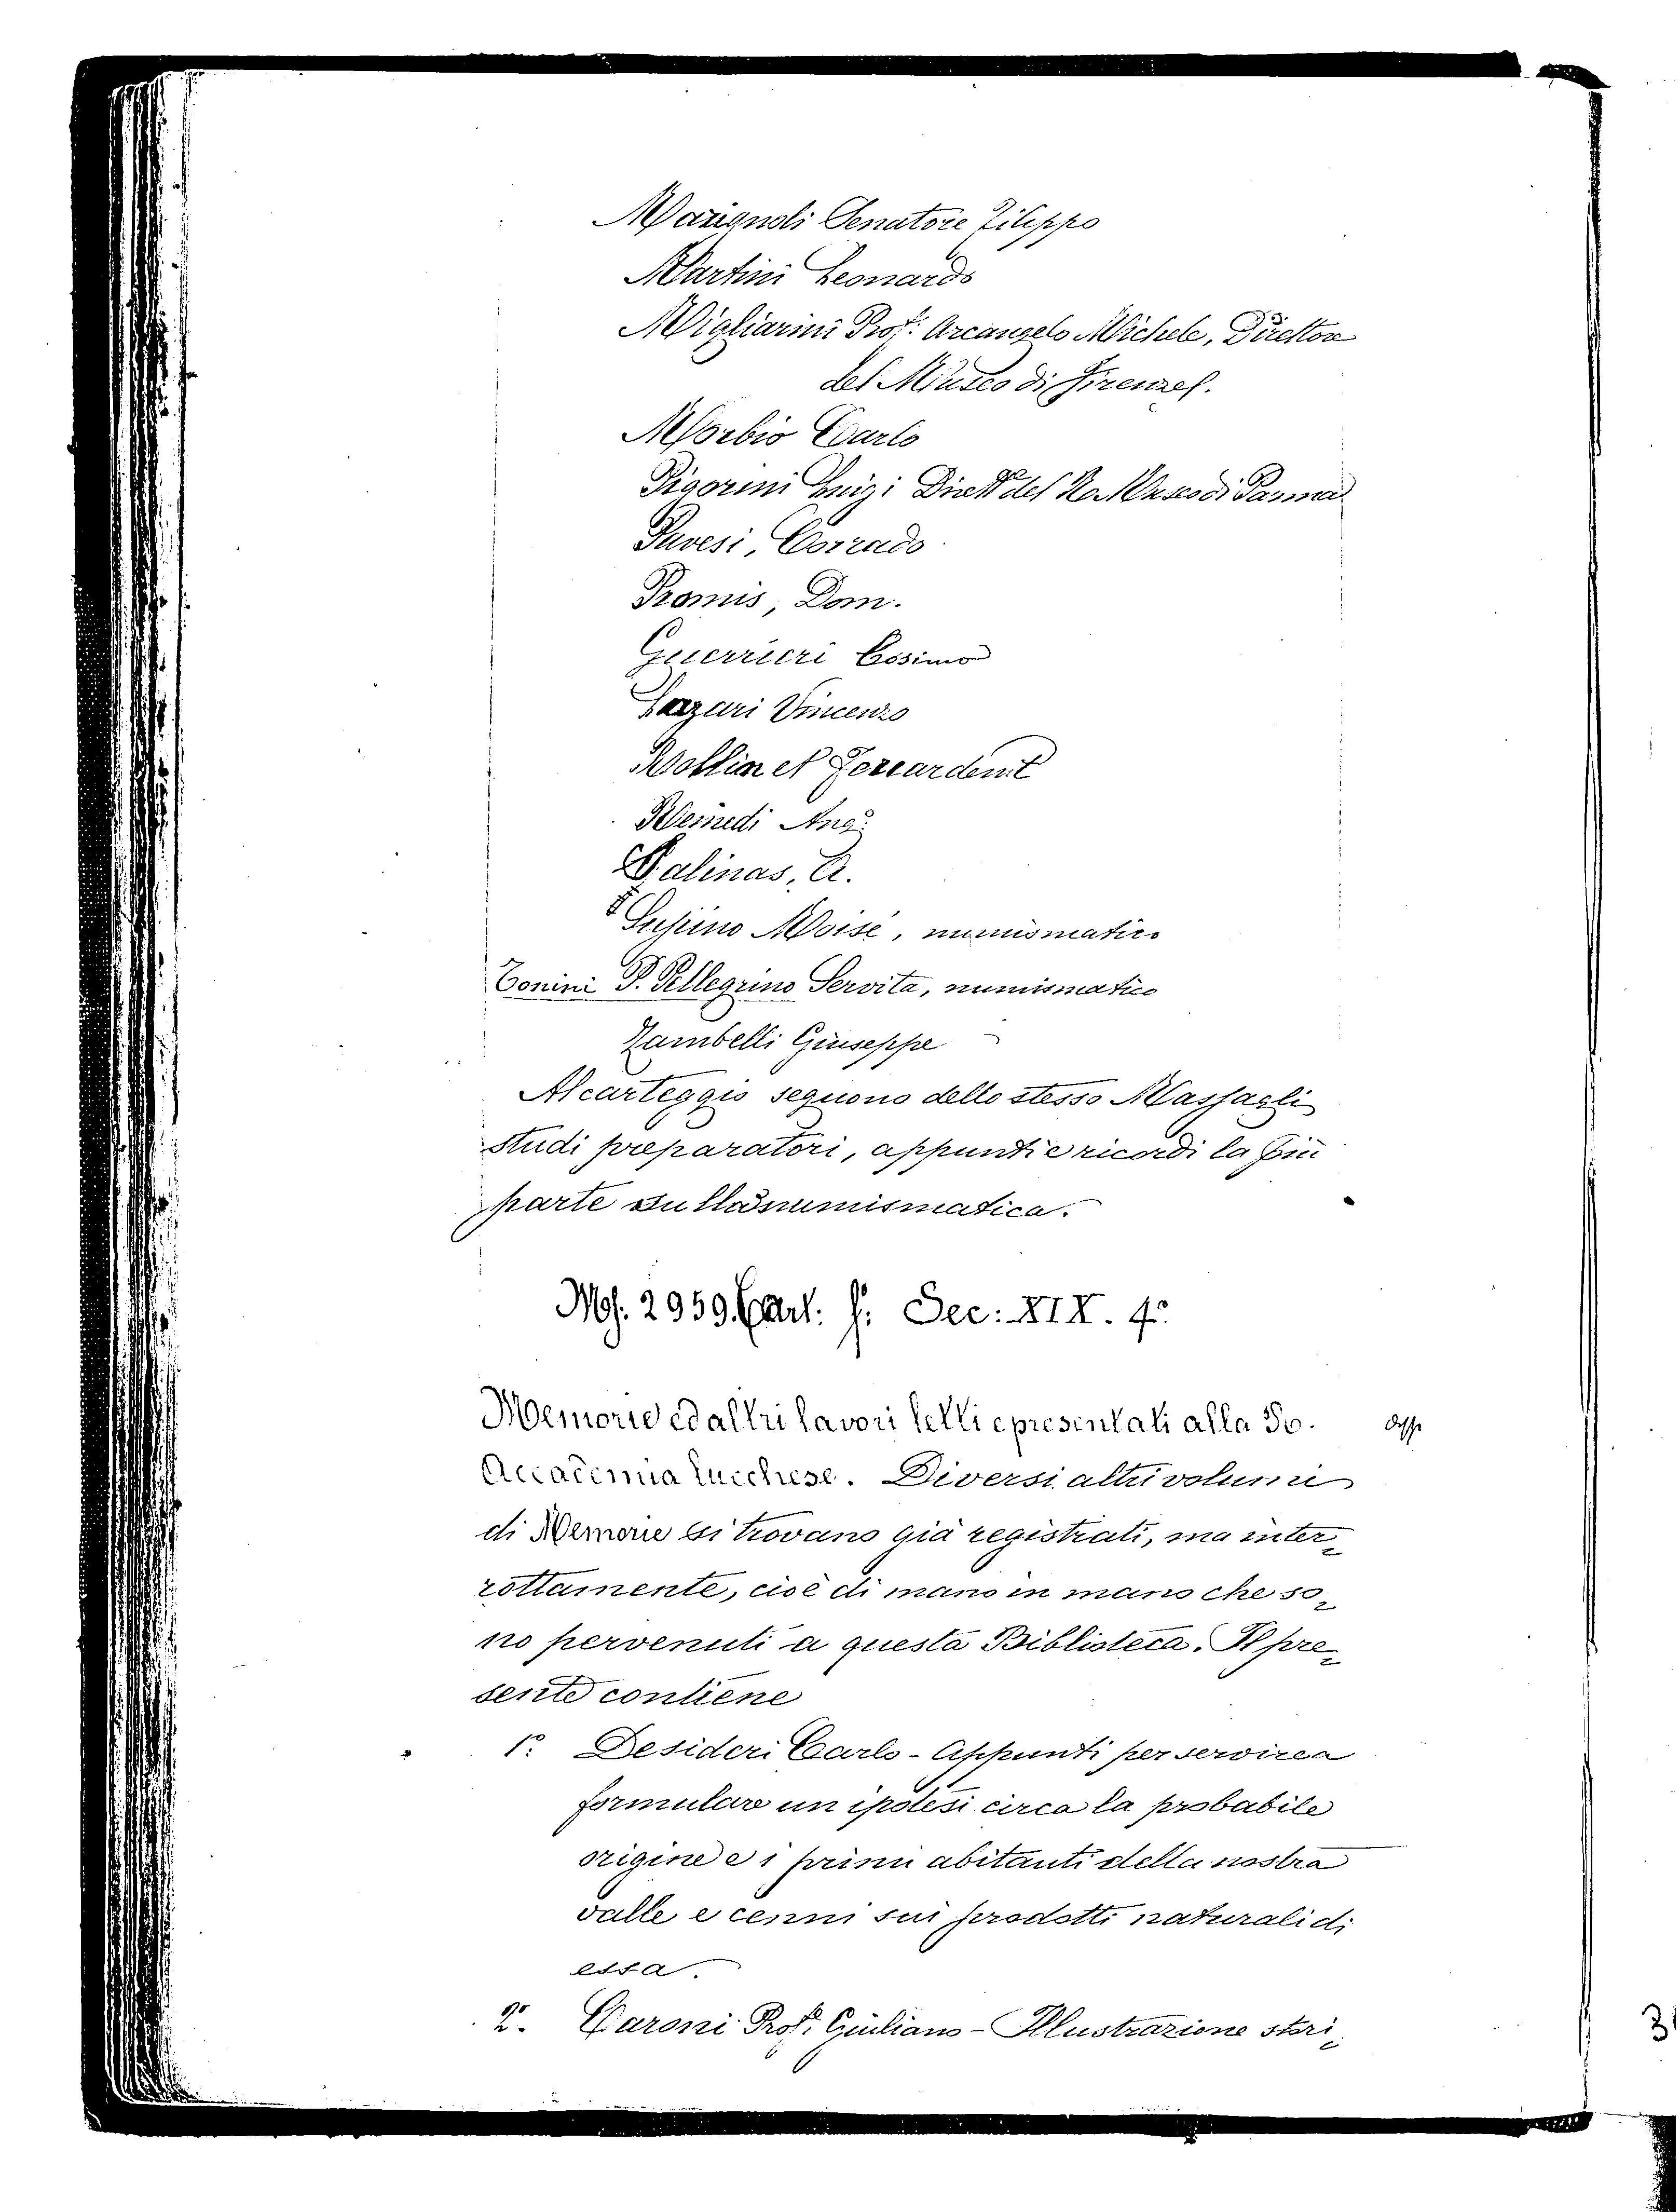 Marignoli Senatore Filippo
Martini Leonardo
Migliarini Prof: Arcangelo Michele, Direttore
del Museo di Firenze.
Morbio Carlo
Pigorini Luigi Dirett.re del R. Museo di Parma
Pavesi, Corrado
Promis, Dom.
Guerrieri Cosimo
Lazari Vincenzo
Rollin et Feuardent
Remedi Ang:
Salinas, A.
Supino Moisè, numismatico
Tonini P. Pellegrino Servita, numismatico
Zambelli Giuseppe
Al carteggio seguono dello stesso Massagli
studi preparatori, appunti e ricordi la più
parte sulla numismatica.
Ms. 2959. Cart: f: Sec: XIX. 4°
Memorie ed altri lavori letti e presentati alla R.
Accademia Lucchese. Diversi altri volumi
di Memorie si trovano già registrati, ma inter-
rottamente, cioè di mano in mano che so-
no pervenuti a questa Biblioteca. Il pre-
sente contiene
1° Desideri Carlo - Appunti per servire a
formulare un ipotesi circa la probabile
origine e i primi abitanti della nostra
valle e cenni sui prodotti naturali di
essa.
2° Caroni Prof. Giuliano - Illustrazione stori-